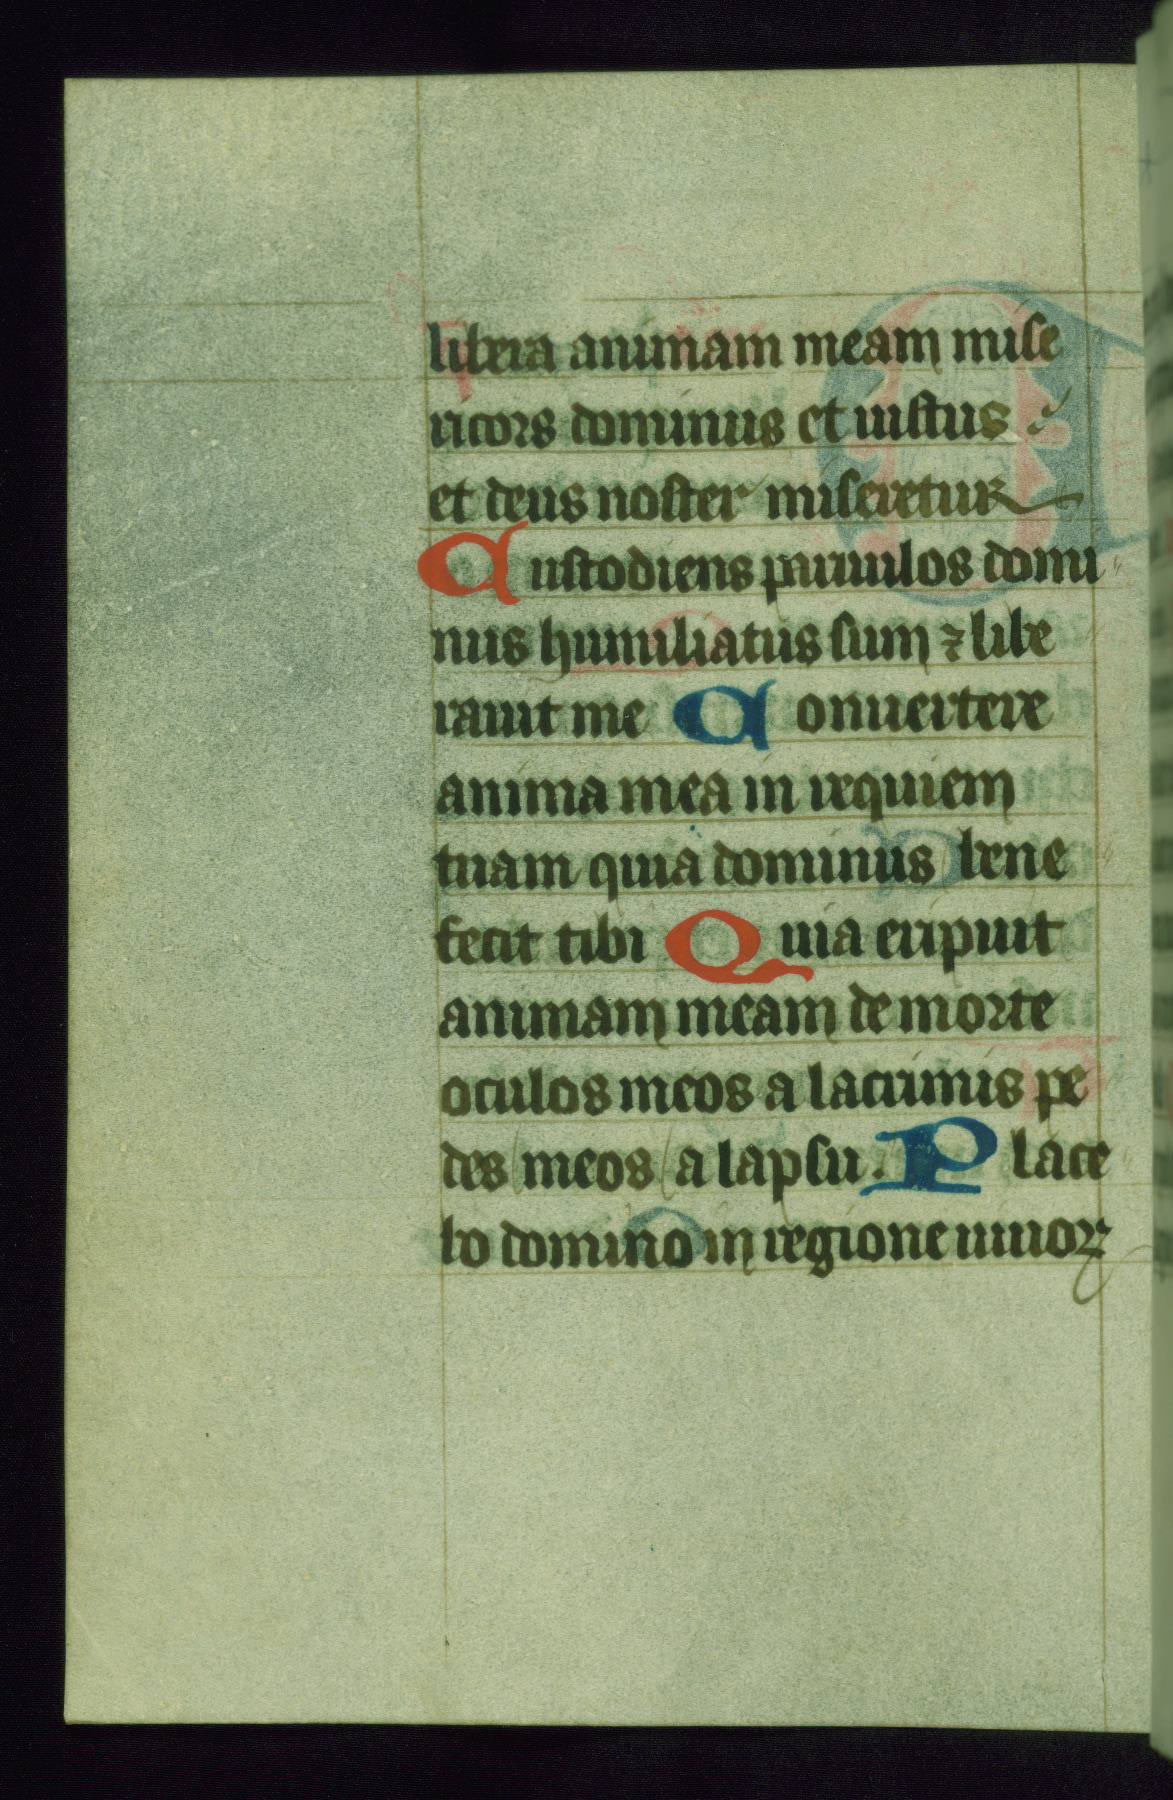 libera animam meam mise
ricors dominus et iustus
et deus noster miseretur
Custodiens paruulos domi
nus humiliatus sum ⁊ libe
rauit me Conuertere
anima mea in requiem
tuam quia dominus bene
fecit tibi Quia eripuit
animam meam de morte
oculos meos a lacrimis pe
des meos a lapsu. Place
bo domino in regione uiuoꝝ